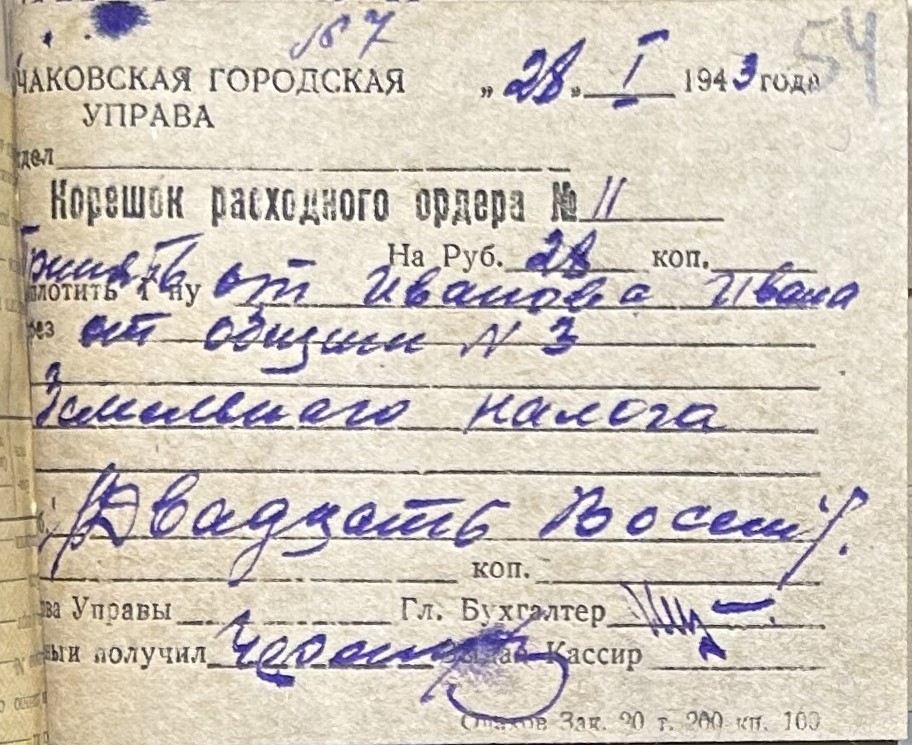 № 7
54
ЧАКОВСКАЯ ГОРОДСКАЯ
УПРАВА
„28„ I 1943 года
дел
Корешок расходного ордера № 11
На Руб. 28 коп.
Принять
плотить Г ну от Иванова Ивана
рез от общини N 3
Земельного налога
/Двадцать Восем/.
коп.
ва Управы Гл. Бухгалтер
ьги получил Кассир
Очаков Зак. 20 т. 200 кп. 100